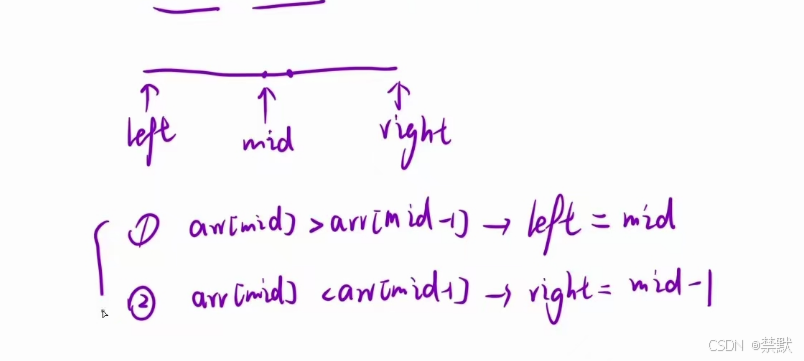 left mid right
① arr[mid] > arr[mid-1] → left = mid
② arr[mid] < arr[mid-1] → right = mid-1
CSDN @禁默